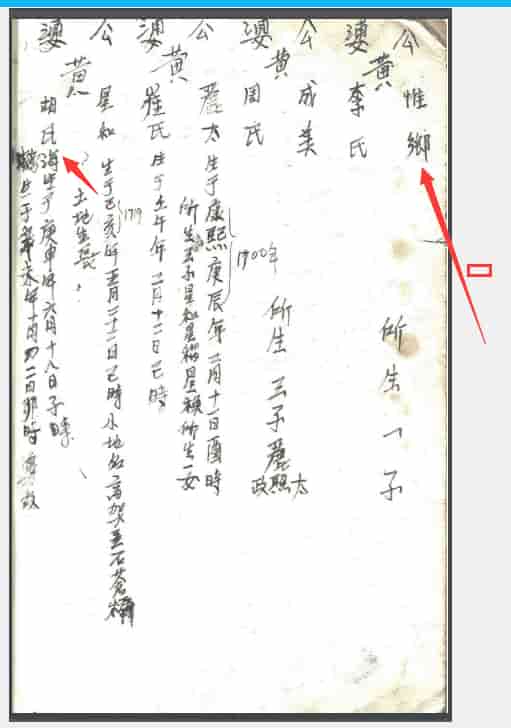 公 黃 惟鄉
婆 李氏
所生一子
公 黃 成美
婆 周氏
所生三子麗太
照
政
公 黃 麗太 生于康熙庚辰年二月十一日酉時
1700年
所生三子星和星耀星穎所生一女
婆 崔氏 生于壬午年二月十二日巳時
公 黃 星和 生于己亥年五月二十二日巳時小地名高架
1719
土地生長
婆 胡氏 海生于庚申年六月十八日子時
生于年十月初二日卯時